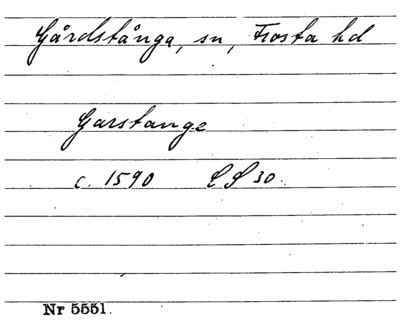 Gårdstånga, sn, Frosta hd
Garstange
c. 1590 LS 30.
Nr 5551.